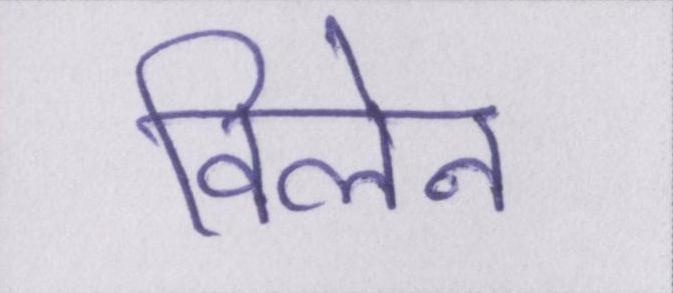 विलेन